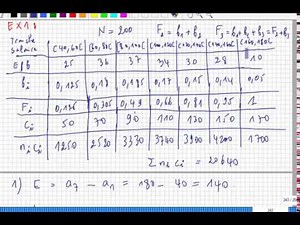 EX18 N = 200 F2 = b1 + b2 F3 = b1 + b2 + b3 = F2 + b3
Tranche salaire [40,60[ [60,80[ [80,100[ [100,120[ [120,140[ [140,160[ [160,180[
Eff 25 36 37 34 30 28 10
bi 0,125 0,18 0,185 0,17 0,15 0,14 0,05
Fi 0,125 0,305 0,49 0,66 0,81 0,95 1
Ci 50 70 90 110 130 150 170
ni Ci 1250 2520 3330 3740 3900 4200 1700
Σ ni Ci = 20640
1) E = a7 - a1 = 180 - 40 = 140